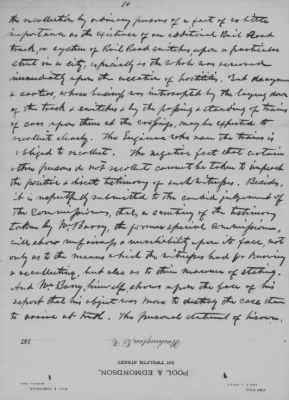 10
the recollection by ordinary persons of a fact of so little
importance as the existence of an additional Rail Road
track, or system of Rail Road switches, upon a particular
street in a city, especially as the whole was removed
immediately upon the cessation of hostilities. But
a carter, whose business was interrupted by the laying down
of the track & switches & by the passing & standing of trains
of cars upon them at the crossings, may be expected to
recollect clearly. The Engineer who ran the trains is
obliged to recollect. The negative fact that certain
other persons do not recollect cannot be taken to impeach
the positive & direct testimony of such witnesses. Besides,
it is respectfully submitted to the candid judgement of
the Commissioners, that, a scrutiny of the testimony
taken by Mr Barry, the former special Commissioner,
will show unfairness & unreliability upon its face, not
only as to the means which the witnesses had for knowing
& recollecting, but also as to their manner of stating.
And Mr Barry, himself, shows upon the face of his
report that his object was more to destroy the case than
to arrive at truth. The personal
Washington, D. C. 187
POOL & EDMONDSON,
TWELFTH STREET